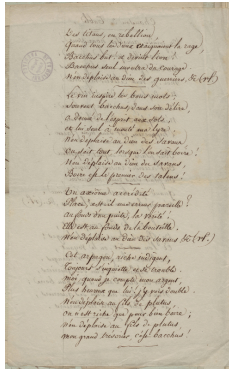 Des titans, en rebellion,
Quand tous les dieux craignirent la rage,
Bacchus but: se divin lion!
Bacchus seul montra du courage
N'en déplaise au dieu des guerriers &c (rf.)
Le vin inspire les bons mots;
Souvent Bacchus, dans son délire
a donné de l'esprit aux sots,
et lui seul à monté ma lyre;
N'en déplaise au dieu des savans
On était tout lorsqu'on sait boire!
N'en déplaise au dieu des savans
Boire est le premier des talens!
Un axiome accrédité
Place, est-il une erreur pareille?
au fonds d'un puits, la vérité!
Elle est au fonds de la bouteille
N'en déplaise au Dieu des savans &c (rf.)
Cet arpagon, riche indigent,
Toujours s'inquiette et se trouble
Moi, quand je compte mon argent,
Plus heureux que lui! j'y vois double
N'en déplaise au fils de plutus,
on n'est riche que pour bien boire;
n'en déplaise au fils de plutus
mon grand trésor c'est bacchus!